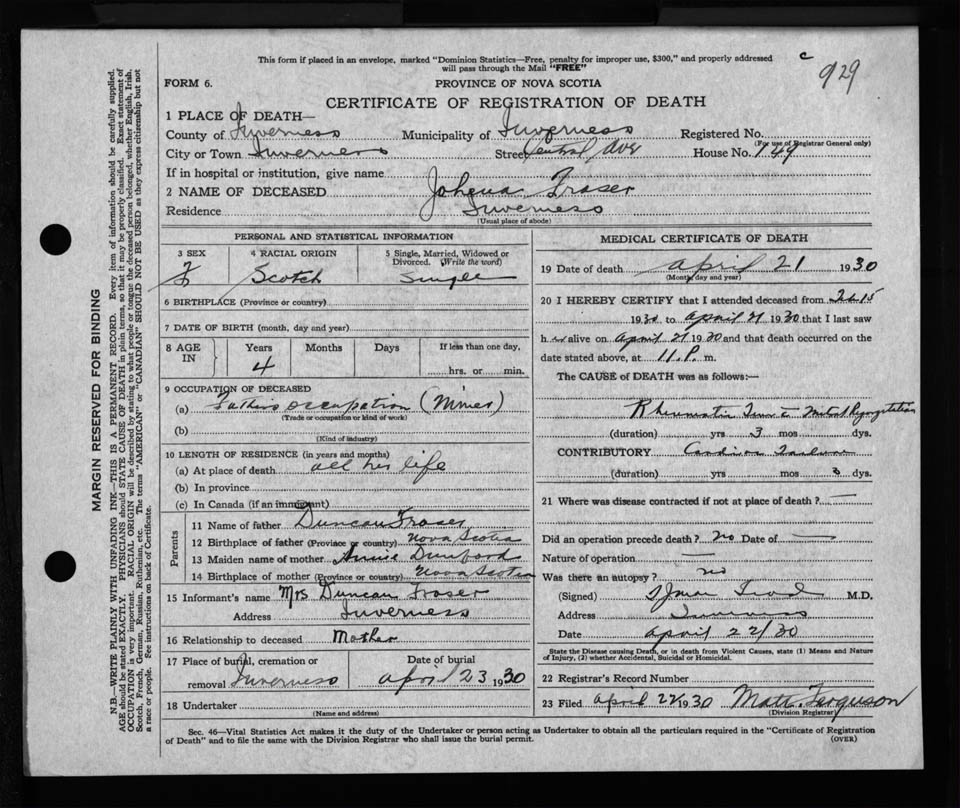 This form if placed in an envelope, marked "Dominion Statistics—Free, penalty for improper use, $300," and properly addressed
will pass through the Mail "FREE"
c 929
FORM 6. PROVINCE OF NOVA SCOTIA
CERTIFICATE OF REGISTRATION OF DEATH
1 PLACE OF DEATH—
County of Inverness Municipality of Inverness Registered No.
(For use of Registrar General only)
City or Town Inverness Street Central Ave House No. 149
If in hospital or institution, give name
2 NAME OF DECEASED Johena Fraser
Residence Inverness
(Usual place of abode)
PERSONAL AND STATISTICAL INFORMATION
3 SEX 4 RACIAL ORIGIN 5 Single, Married, Widowed or Divorced. (Write the word)
F Scotch Single
6 BIRTHPLACE (Province or country)
7 DATE OF BIRTH (month, day and year)
8 AGE IN Years Months Days If less than one day,
4 hrs. or min.
9 OCCUPATION OF DECEASED
(a) Fathers occupation (Miner)
(Trade or occupation or kind of work)
(b)
(Kind of industry)
10 LENGTH OF RESIDENCE (in years and months)
(a) At place of death all her life
(b) In province
(c) In Canada (if an immigrant)
Parents
11 Name of father Duncan Fraser
12 Birthplace of father (Province or country) Nova Scotia
13 Maiden name of mother Annie Dunford
14 Birthplace of mother (Province or country) Nova Scotia
15 Informant's name Mrs Duncan Fraser
Address Inverness
16 Relationship to deceased Mother
17 Place of burial, cremation or removal Inverness Date of burial April 23 1930
18 Undertaker
(Name and address)
MEDICAL CERTIFICATE OF DEATH
19 Date of death April 21 1930
(Month, day and year)
20 I HEREBY CERTIFY that I attended deceased from 15
1930 to April 21 1930 that I last saw
h alive on April 21 1930 and that death occurred on the
date stated above, at 11.P. m.
The CAUSE of DEATH was as follows:—
Rheumatic Mitral Regurgitation
(duration) yrs 3 mos dys.
CONTRIBUTORY Cardiac Failure
(duration) yrs mos 3 dys.
21 Where was disease contracted if not at place of death? —
Did an operation precede death? no Date of —
Nature of operation —
Was there an autopsy? no
(Signed) M.D.
Address Inverness
Date April 22/30
State the Disease causing Death, or in death from Violent Causes, state (1) Means and Nature
of Injury, (2) whether Accidental, Suicidal or Homicidal.
22 Registrar's Record Number
23 Filed April 22 1930 Matt. Ferguson
(Division Registrar)
Sec. 46—Vital Statistics Act makes it the duty of the Undertaker or person acting as Undertaker to obtain all the particulars required in the "Certificate of Registration
of Death" and to file the same with the Division Registrar who shall issue the burial permit. (OVER)
MARGIN RESERVED FOR BINDING
N.B.—WRITE PLAINLY WITH UNFADING INK—THIS IS A PERMANENT RECORD. Every item of information should be carefully supplied.
AGE should be stated EXACTLY. PHYSICIANS should STATE CAUSE OF DEATH in plain terms, so that it may be properly classified. Exact statement of
OCCUPATION is very important. RACIAL ORIGIN will be described by stating to what people or tongue the deceased person belonged, whether English, Irish,
Scotch, French, German, Russian, Ruthenian, etc. The terms "AMERICAN" or "CANADIAN" SHOULD NOT BE USED as they express citizenship but not
a race or people. See instructions on back of Certificate.